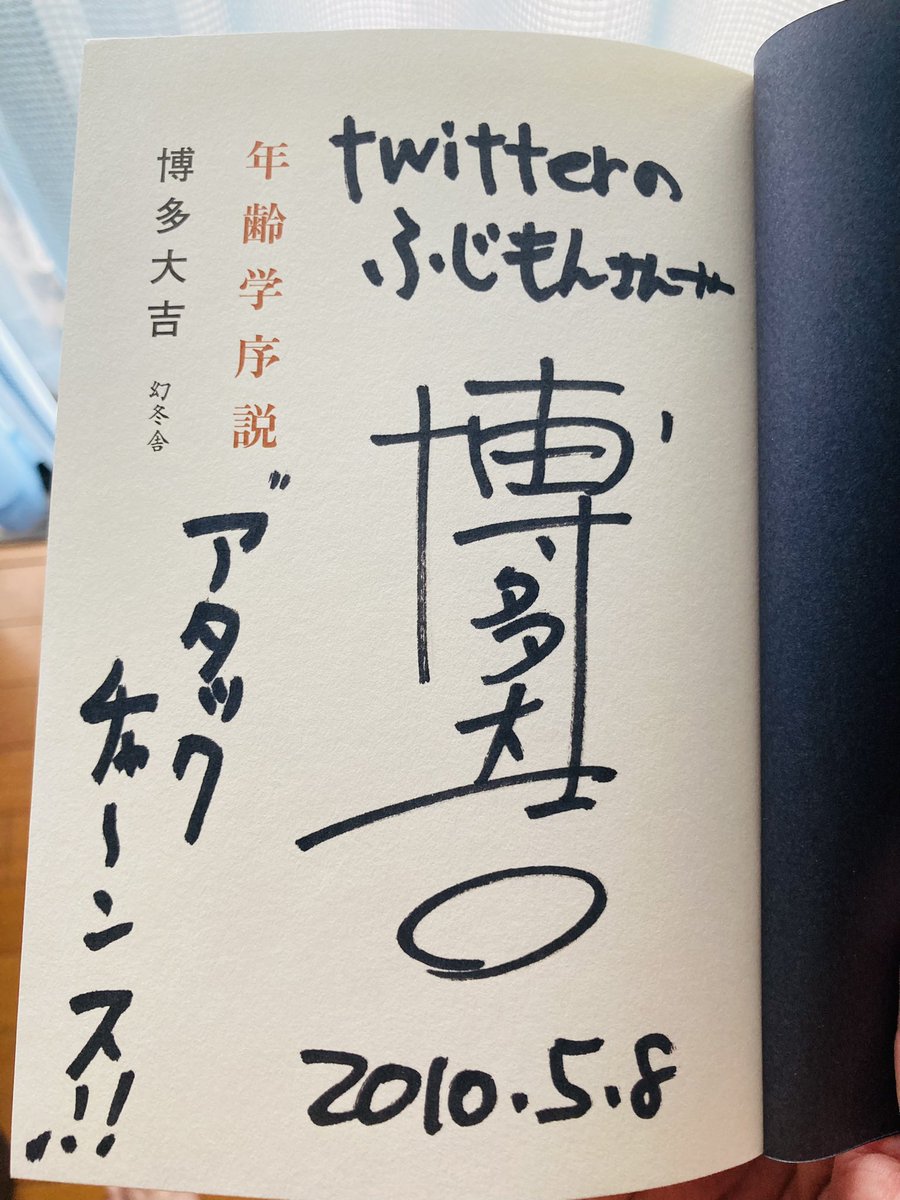 twitterの
ふじもんさんへ
年齢学序説
博多大吉
幻冬舎
博多大吉
"アタック
チャーンス!!
2010.5.8